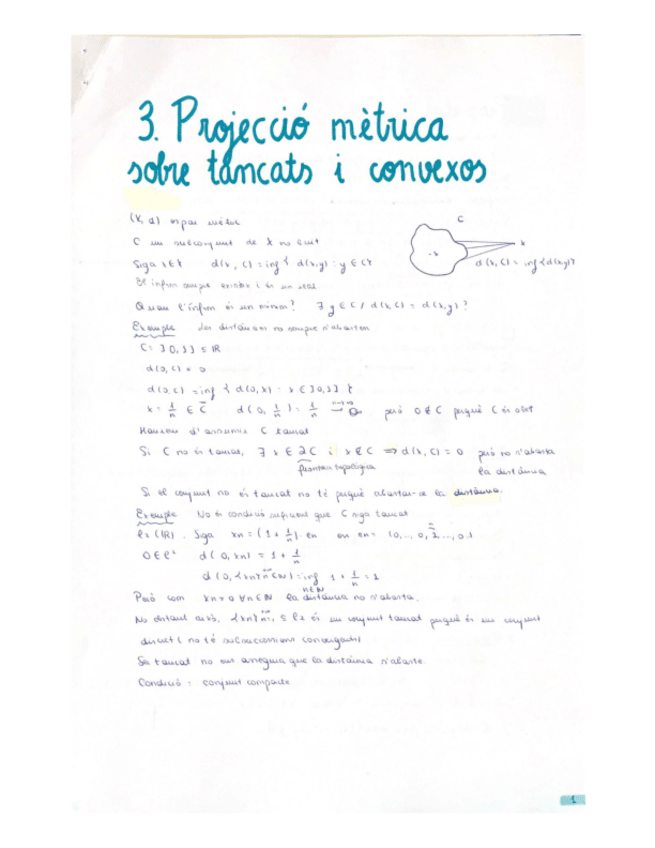 3. Projecció mètrica
sobre tancats i convexos
(X, d) espai mètric
C
C un subconjunt de X no buit
x
Siga x∈X d(x, C) = inf { d(x,y) : y ∈ C}
d(x, C) = inf {d(x,y)}
El ínfim sempre existeix i és un real
Quan l'ínfim és un mínim? ∃ y ∈ C / d(x,C) = d(x,y)?
Exemple Les distàncies no sempre s'abasten
C = ]0,1] ⊆ ℝ
d(0,C) = 0
d(0,C) = inf { d(0,x) : x ∈ ]0,1] }
x = 1/n ∈ C d(0, 1/n) = 1/n → 0, però 0 ∉ C perquè C és obert
Haurem d'assumir C tancat
Si C no és tancat, ∃ x ∈ ∂C i x ∉ C ⇒ d(x, C) = 0 però no s'abasta
frontera topològica
la distància
Si el conjunt no és tancat no té perquè abastar-se la distància.
Exemple No és condició suficient que C siga tancat
ℓ2 (ℝ). Siga xn = (1 + 1/n) · en on en = (0,..., 0, 1, ..., 0)
0 ∈ ℓ² d(0, xn) = 1 + 1/n
d(0, {xn}n∈ℕ) = inf n∈ℕ 1 + 1/n = 1
Però com xn ≠ 0 ∀n∈ℕ la distància no s'abasta.
No obstant això, {xn} ⊆ ℓ2 és un conjunt tancat perquè és un conjunt
discret (no té subsuccessions convergents)
Ser tancat no ens assegura que la distància s'abaste.
Condició: conjunt compacte
1